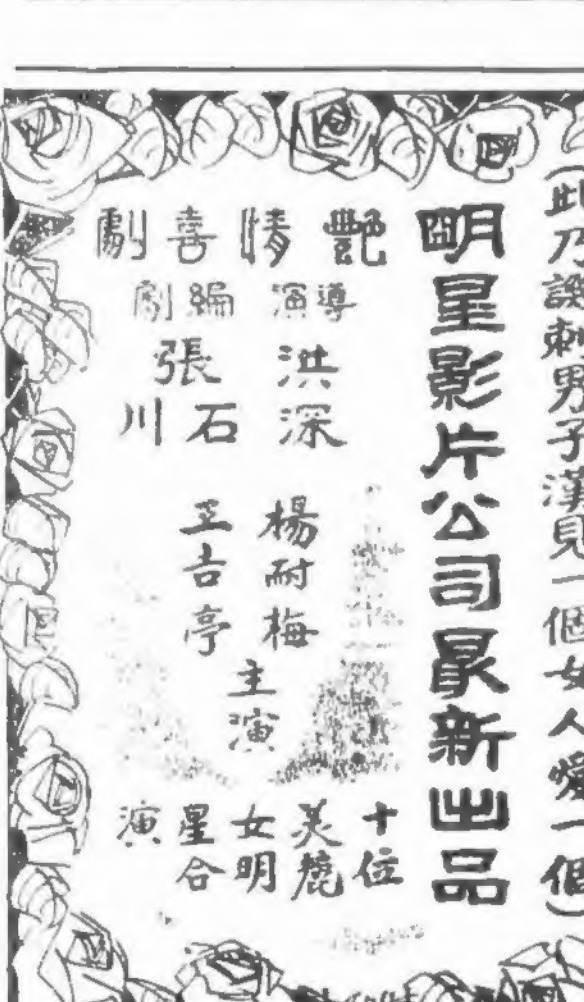 (此乃譏刺男子漢見一個女人愛一個)
明星影片公司最新出品
艷情喜劇
導演 編劇
洪深 張石川
楊耐梅
王吉亭
主演
十位美麗女明星合演